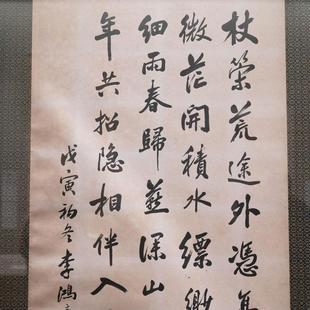 杖策荒途外憑
微茫開積水縹緲
細雨春歸燕深山
年共招隐相伴入
戊寅初冬李鴻